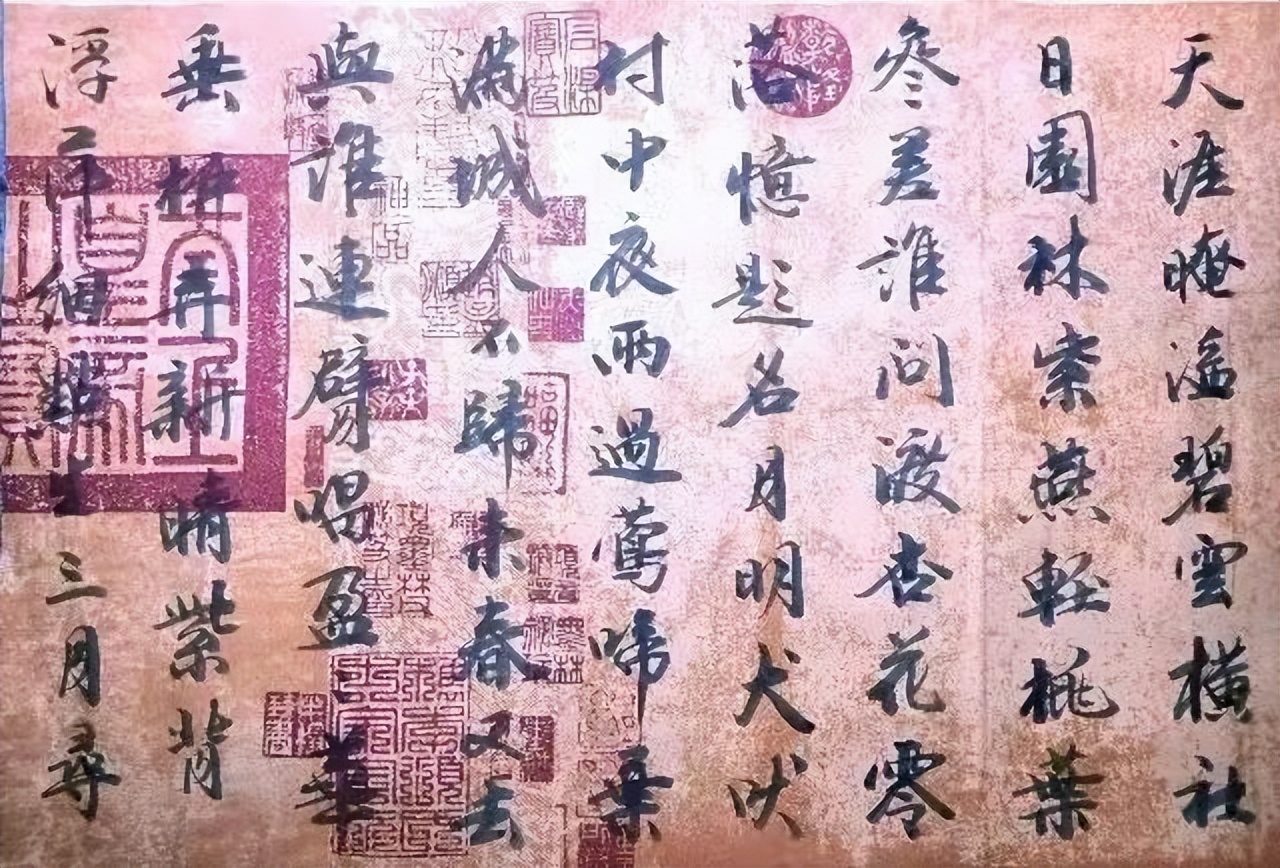 天涯晻溘碧雲橫社
日園林紫燕輕桃葉
參差誰問渡杏花零
落憶題名月明犬吠
村中夜雨過鶯啼葉
滿城人不歸來春又去
與誰連臂唱盈々
垂 再新晴紫背
浮萍細點生三月尋